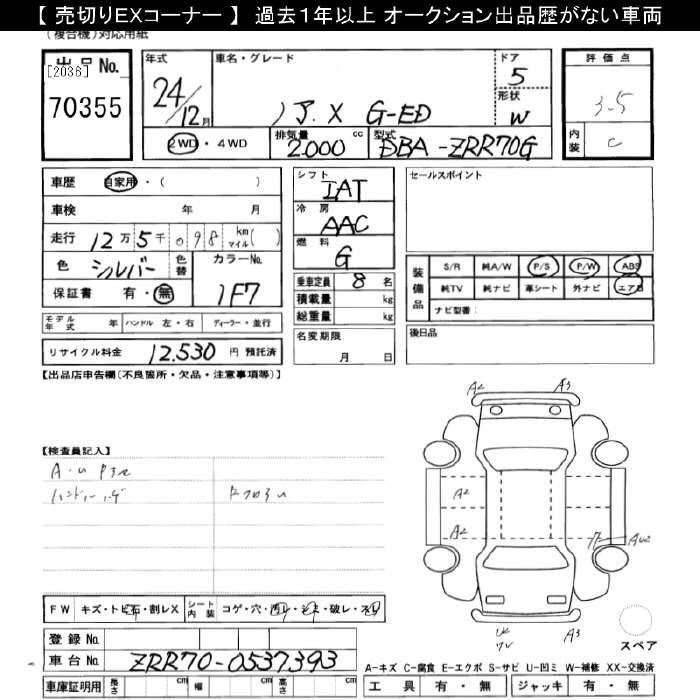 【 売切りEXコーナー 】 過去１年以上 オークション出品歴がない車両
(複合機)対応用紙
出品No.
[2036]
70355
年式
24/12月
車名・グレード
ノア.X G-ED
ドア
5
形状
W
評価点
3-5
内装
C
2WD・4WD
排気量 cc
2000
型式
DBA-ZRR70G
車歴 自家用・( )
車検 年 月
走行 12万5千098 km マイル( )
色 シルバー 色替 カラーNo.
1F7
保証書 有・無
シフト
IAT
冷房
AAC
燃料
G
乗車定員 8 名
積載量 kg
総重量 kg
名変期限
月 日
セールスポイント
装備品
S/R 純A/W P/S P/W ABS
純TV 純ナビ 革シート 外ナビ エアB
ナビ型番:
後日品
モデル年式 年 ハンドル 左・右 ディーラー・並行
リサイクル料金 12.530 円 預託済
【出品店申告欄(不良箇所・欠品・注意事項等)】
A2 A3
【検査員記入】
A2
A2
A3
FW キズ・トビ石・割レX シート内装 コゲ・穴・
・破レ・スレ
登録No.
車台No. ZRR70-0537393
スペア
A-キズ C-腐食 E-エクボ S-サビ U-凹ミ W-補修 XX-交換済
車庫証明用 長さ cm 幅 cm 高さ cm
工具 有・無 ジャッキ 有・無